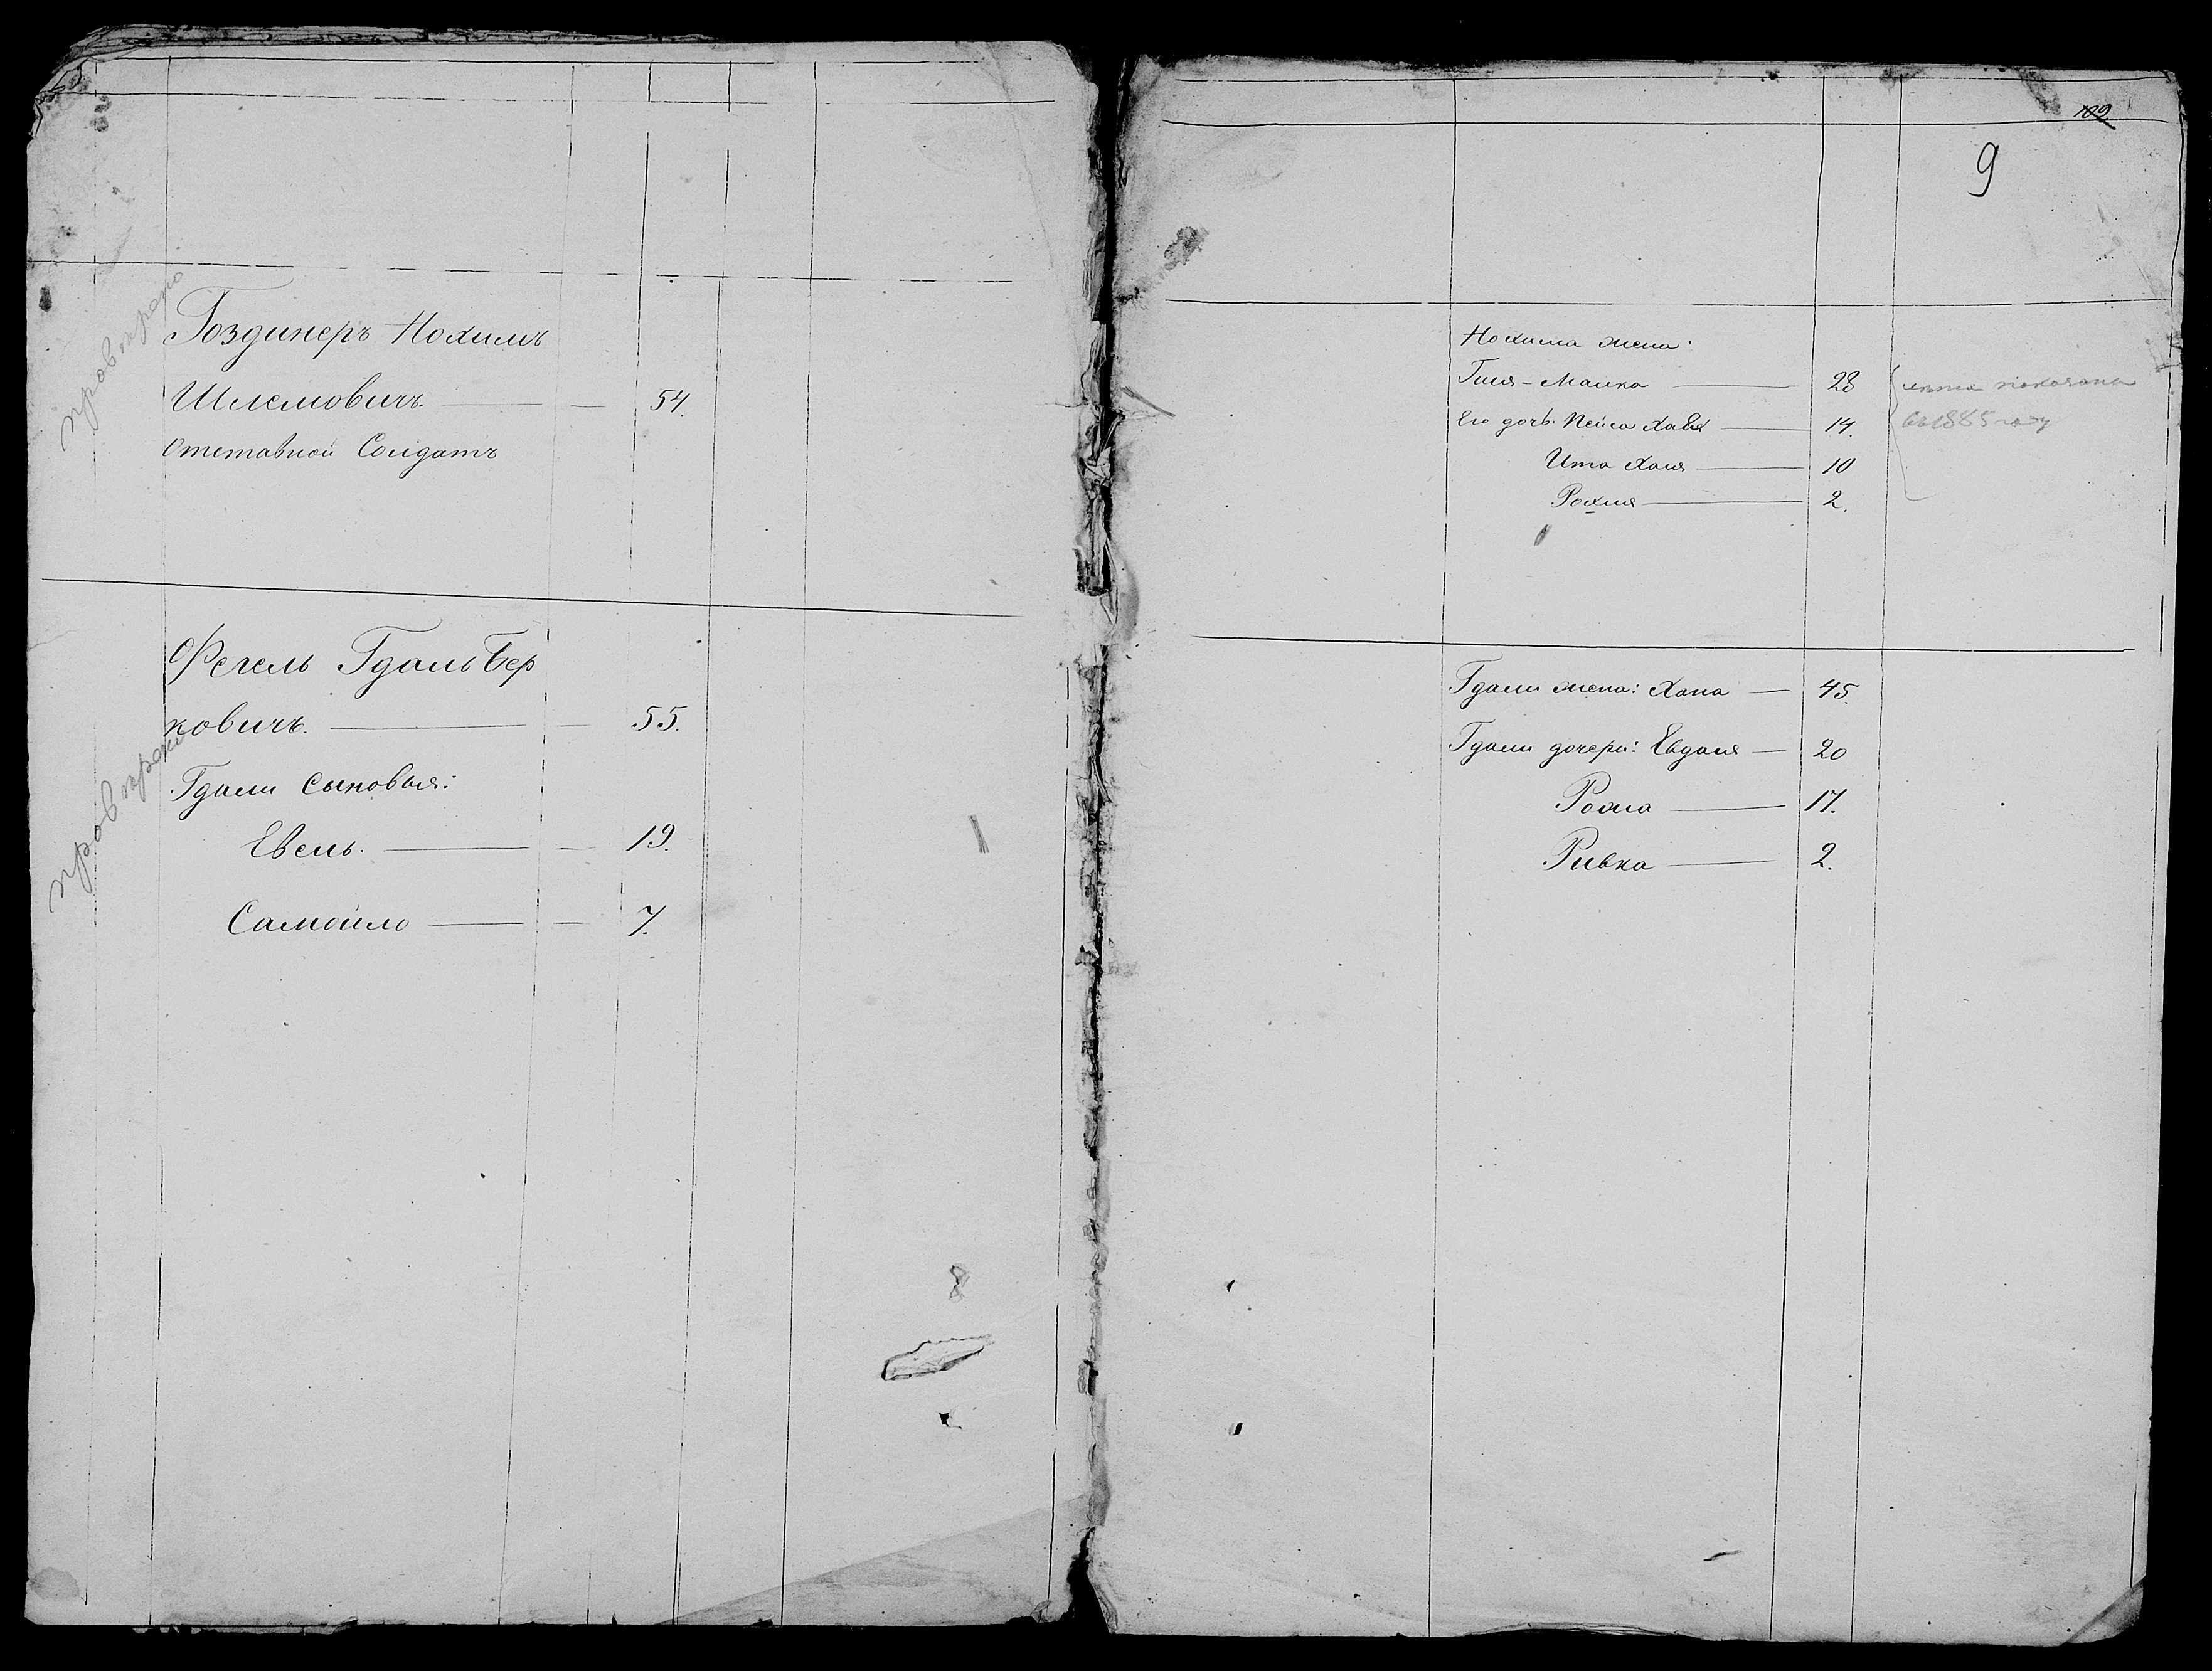 Гоздинеръ Нохимъ
Шлемовичъ. 54.
Отставной Солдатъ
Фегель Гдаль Бер
ковичъ. 55.
Гдали сыновья:
Евель. 19.
Самойло 7.
109
9
Нохима жена:
Гитя-Малка 28
Его дочь: Пейса Хая 14.
Ита Хая 10
Рохля 2.
лета показаны
въ 1885 году
Гдали жена: Хана 45.
Гдали дочери: Евдаля 20
Рохла 17.
Ривка 2.